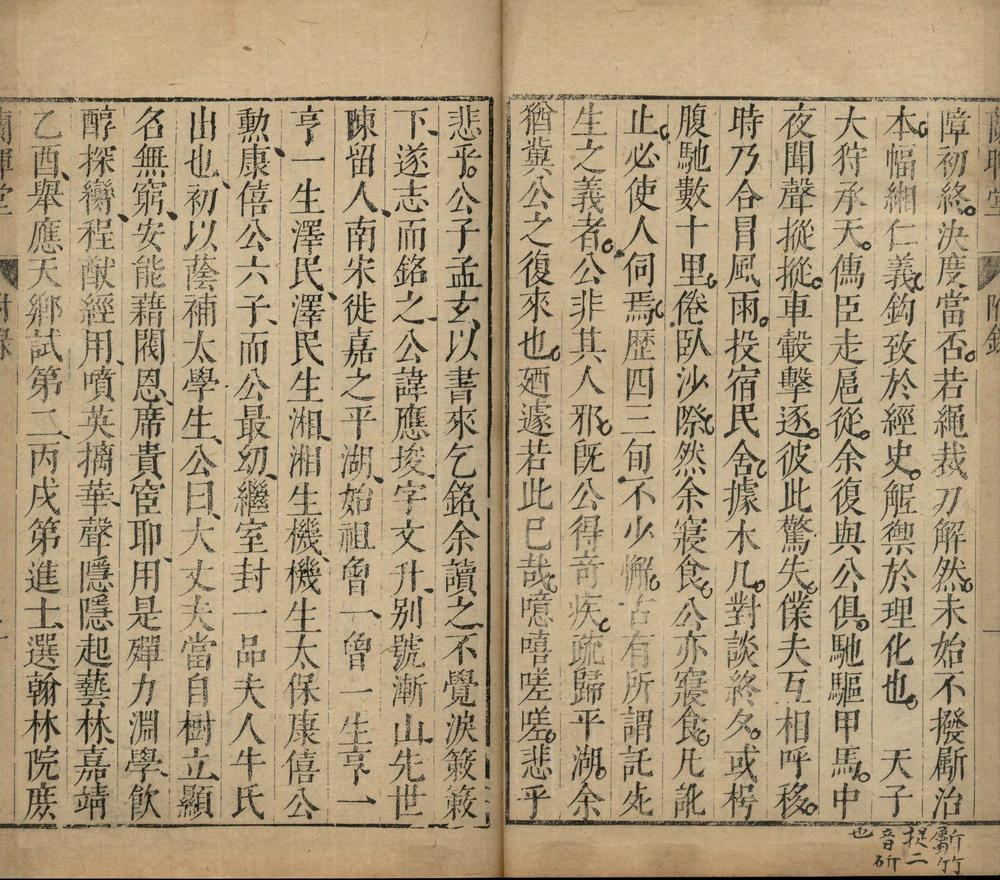 障初終決度當否若繩裁刀解然未始不撥斸治
本幅緗仁義鈎致於經史觝禦於理化也　天子
大狩承天傳臣走扈從余復與公俱馳驅甲馬中
夜聞聲摐摐車轂擊逐彼此驚失僕夫互相呼移
時乃合冒風雨投宿民舍據木几對談終夕或枵
腹馳數十里倦臥沙際然余寢食公亦寢食凡訛
止必使人伺焉歷四三旬不少懈古有所謂託先
生之義者公非其人邪既公得奇疾疏歸平湖余
猶冀公之復來也廼遽若此已哉噫嘻嗟嗟悲乎
悲乎公子孟玄以書來乞銘余讀之不覺淚簌簌
下遂志而銘之公諱應埈字文升别號漸山先世
陳留人南宋徙嘉之平湖始祖曾一曾一生亨一
亨一生澤民澤民生湘湘生機機生太保康僖公
勲康僖公六子而公最幼繼室封一品夫人牛氏
出也初以蔭補太學生公曰大丈夫當自樹立顯
名無窮安能藉閥恩席貴宦耶用是殫力淵學飲
醇探臠程猷經用噴英摛華聲隱隱起藝林嘉靖
乙酉舉應天鄉試第二丙戌第進士選翰林院庶
蘭暉堂　附録
斸竹
捉二
音斫
也